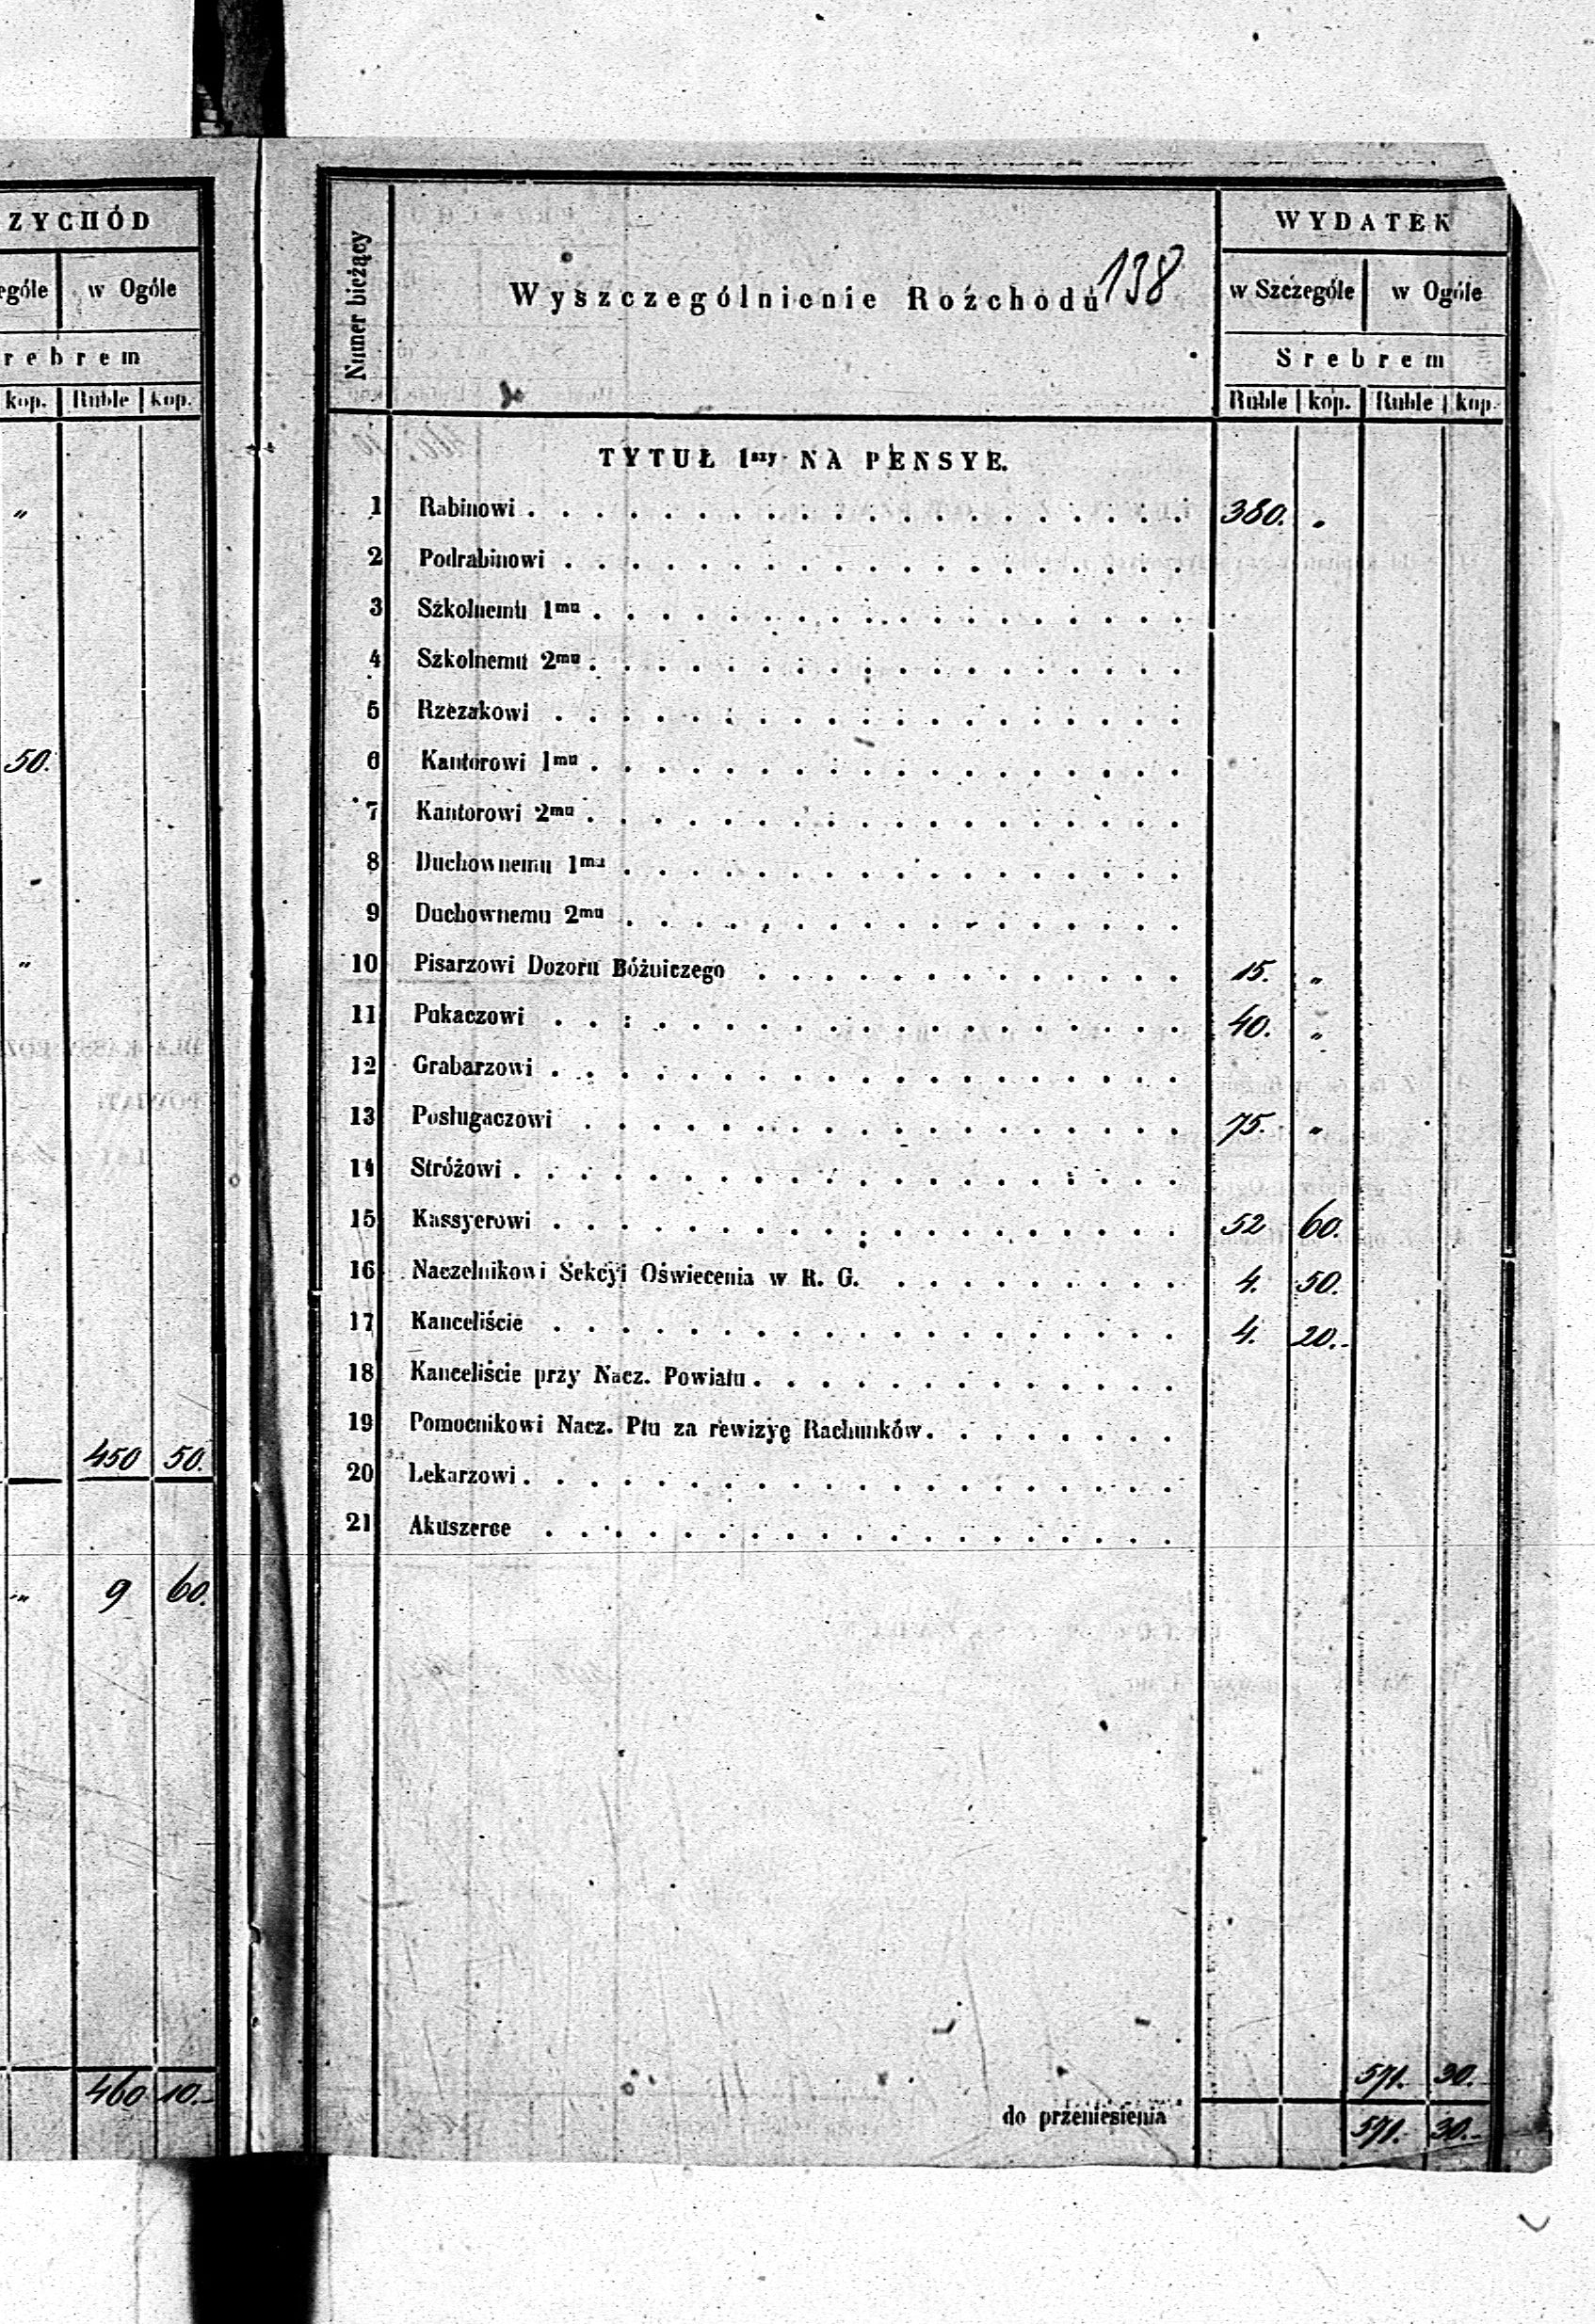 ZYCHÓD
w Ogóle
rebrem
kop. Ruble kop.
"
50.
"
450 50.
" 9 60.
460 10.
138
Numer bieżący
Wyszczególnienie Rozchodu
WYDATEK
w Szczególe w Ogóle
Srebrem
Ruble kop. Ruble kop.
TYTUŁ Iszy NA PENSYE.
1 Rabinowi 380. "
2 Podrabinowi
3 Szkolnemu 1mu
4 Szkolnemu 2mu
5 Rzezakowi
6 Kantorowi 1mu
7 Kantorowi 2mu
8 Duchownemu 1mu
9 Duchownemu 2mu
10 Pisarzowi Dozoru Bóżniczego 15. "
11 Pukaczowi 40. "
12 Grabarzowi
13 Posługaczowi 75. "
14 Stróżowi
15 Kassyerowi 52 60.
16 Naczelnikowi Sekcyi Oświecenia w R. G. 4. 50.
17 Kanceliście 4. 20.
18 Kanceliście przy Nacz. Powiatu
19 Pomocnikowi Nacz. Ptu za rewizyę Rachunków
20 Lekarzowi
21 Akuszerce
571. 30.
do przeniesienia 571. 30.